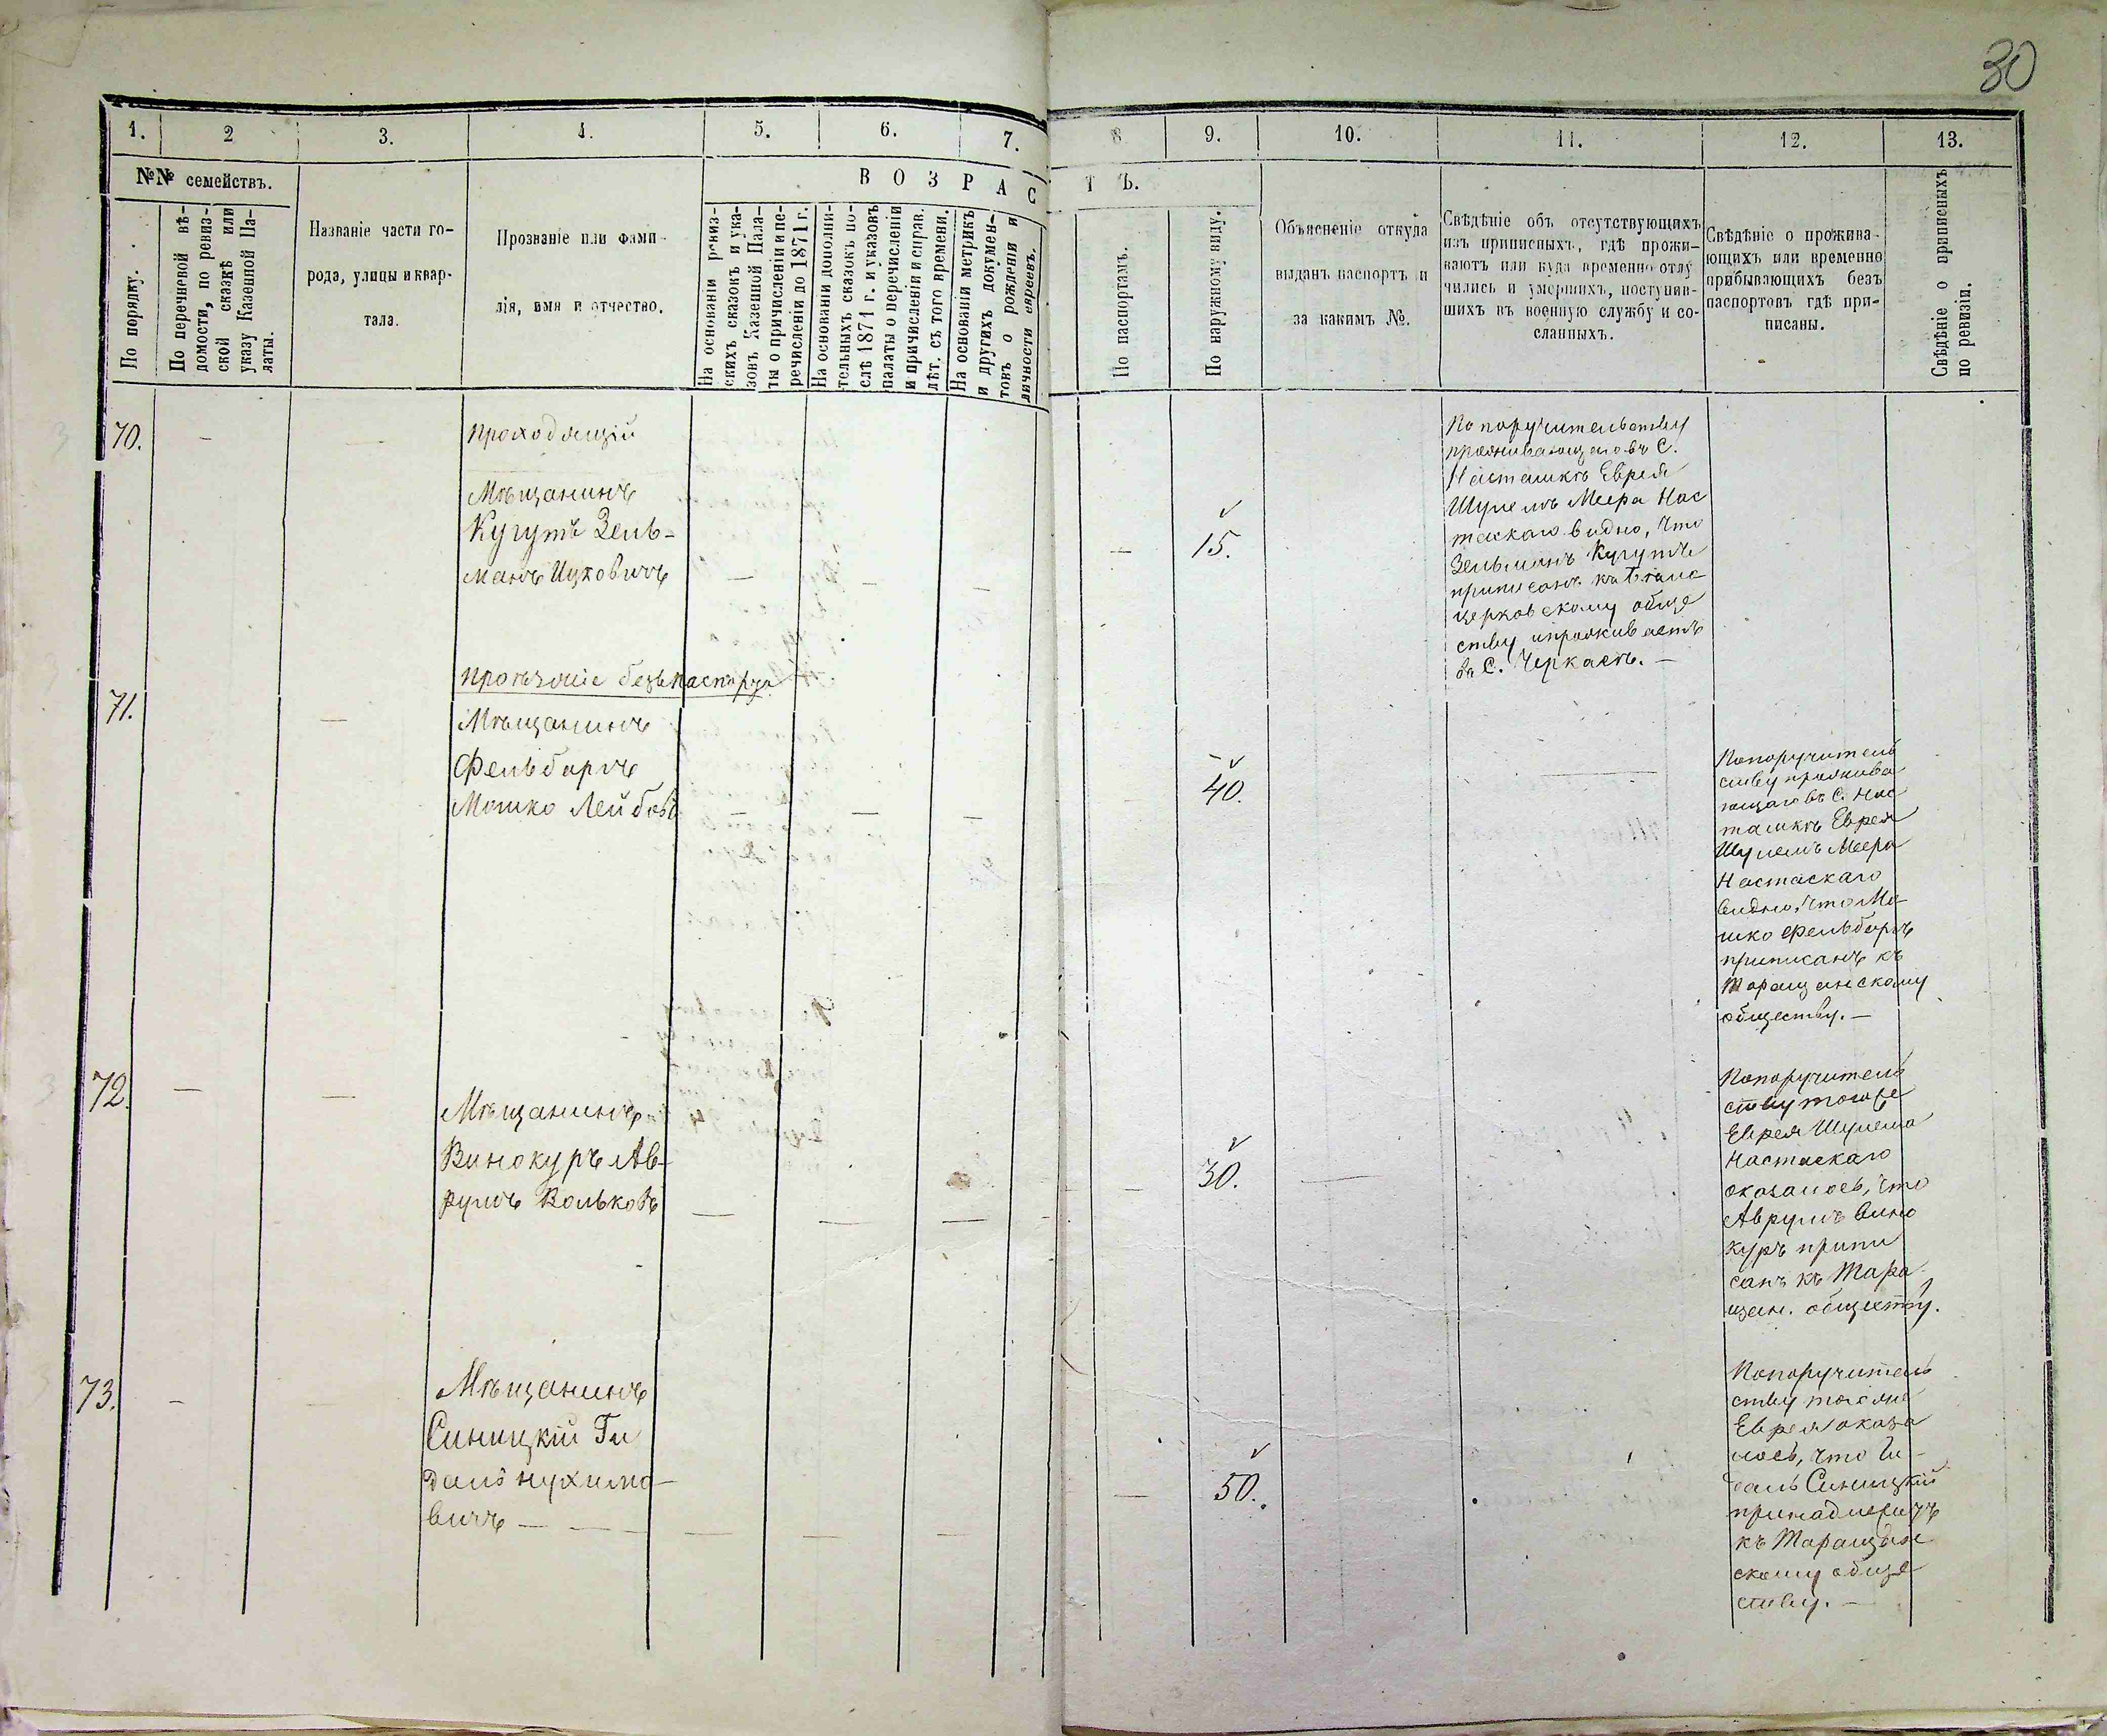 30
1. 2 3. 4. 5. 6. 7. 8 9. 10. 11. 12. 13.
№№ семействъ.
В О З Р А С Т Ъ.
По порядку.
По перечневой вѣ-
домости, по ревиз-
ской сказкѣ или
указу Казенной Па-
латы.
Названіе части го-
рода, улицы и квар-
тала.
Прозваніе или фами-
лія, имя и отчество.
На основаніи ревиз-
скихъ сказокъ и ука-
зовъ Казенной Пала-
ты о причисленіи и пе-
речисленіи до 1871 г.
На основаніи дополни-
тельныхъ сказокъ по-
слѣ 1871 г. и указовъ
палаты о перечисленіи
и причисленіи и справ.
лѣт. съ того времени.
На основаніи метрикъ
и другихъ докумен-
товъ о рожденіи и
личности евреевъ.
По паспортамъ.
По наружному виду.
Объясненіе откуда
выданъ паспортъ и
за какимъ №.
Свѣдѣніе объ отсутствующихъ
изъ приписныхъ, гдѣ прожи-
ваютъ или куда временно отлу
чились и умершихъ, поступив-
шихъ въ военную службу и со-
сланныхъ.
Свѣдѣніе о прожива-
ющихъ или временно
прибывающихъ безъ
паспортовъ гдѣ при-
писаны.
Свѣдѣніе о приписныхъ
по ревизіи.
70.
Проходящій
Мѣщанинъ
Кугутъ Зель-
манъ Ицковичъ
15.
По поручительству
проживающаго въ С.
Насташкѣ Еврея
Шулемъ Меера Нас
таскаго видно, что
Зельманъ Кугутъ
приписанъ къ Бѣло
церковскому обще
ству и проживаетъ
въ С. Черкасъ. —
Проѣзжіе безъ паспорта
71.
Мѣщанинъ
Фельбаръ
Мошко Лейбовъ
40.
По поручитель
ству прожива
ющаго въ С. Нас
ташкѣ Еврея
Шулемъ Меера
Настаскаго
видно, что Мо-
шко Фельбаръ
приписанъ къ
Таращанскому
обществу. —
72.
Мѣщанинъ
Винокуръ Ав-
румъ Вольковъ
30.
По поручитель
ству того же
Еврея Шулема
Настаскаго
оказалось, что
Аврумъ Вино
куръ припи
санъ къ Тара
щан. обществу.
73.
Мѣщанинъ
Синицкій Ги
даль Нухимо-
вичъ
50.
По поручитель
ству того же
Еврея оказа
лось, что Ги-
даль Синицкій
принадлежитъ
къ Таращан
скому обще
ству. —